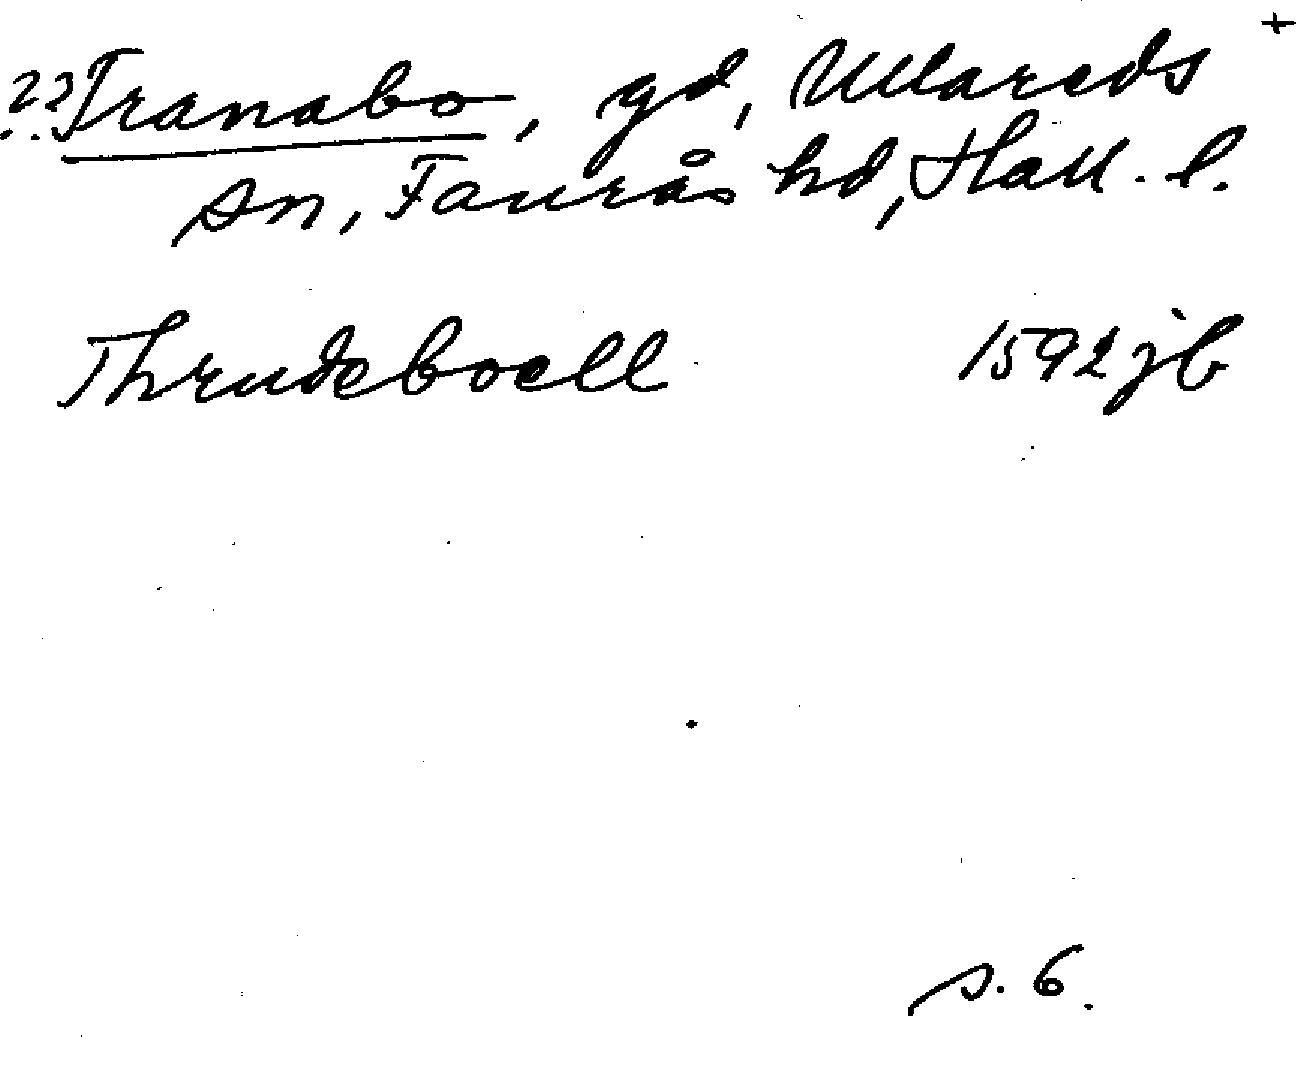 ??Tranabo, gd, Ullareds +
sn, Faurås hd, Hall. l.
Thrudeboell 1592 jb
s. 6.